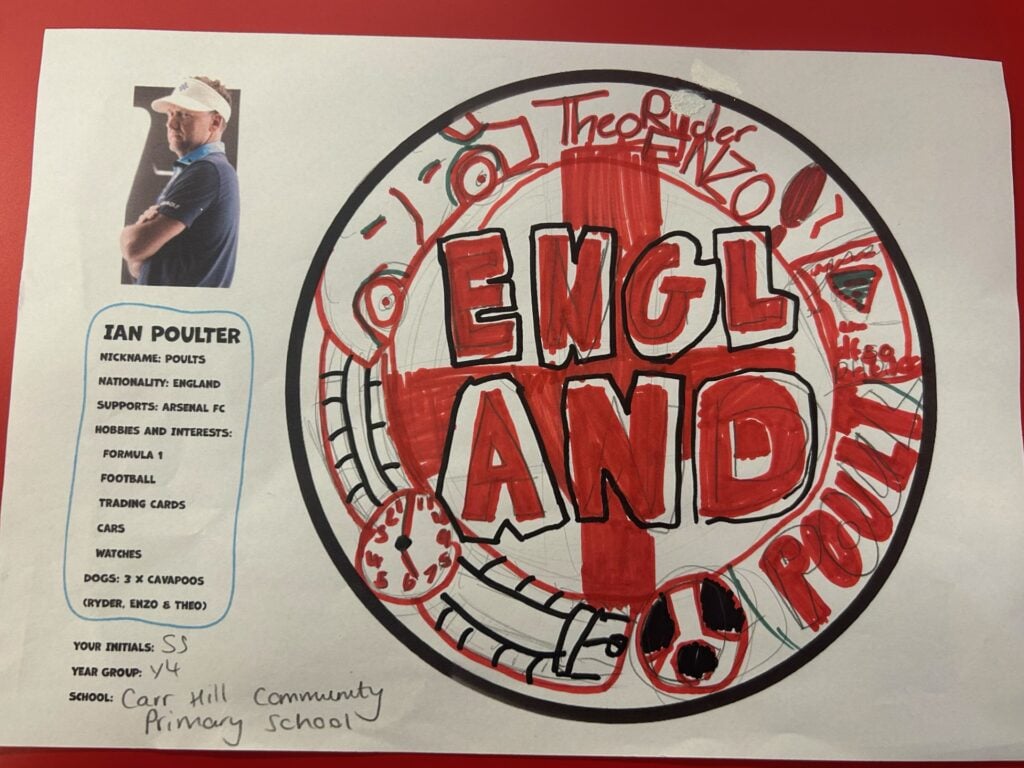 IAN POULTER
NICKNAME: POULTS
NATIONALITY: ENGLAND
SUPPORTS: ARSENAL FC
HOBBIES AND INTERESTS:
FORMULA 1
FOOTBALL
TRADING CARDS
CARS
WATCHES
DOGS: 3 X CAVAPOOS
(RYDER, ENZO & THEO)
YOUR INITIALS: SS
YEAR GROUP: Y4
SCHOOL: Carr Hill Community
Primary School
Theo Ryder
ENZO
ENGL
AND
POULT